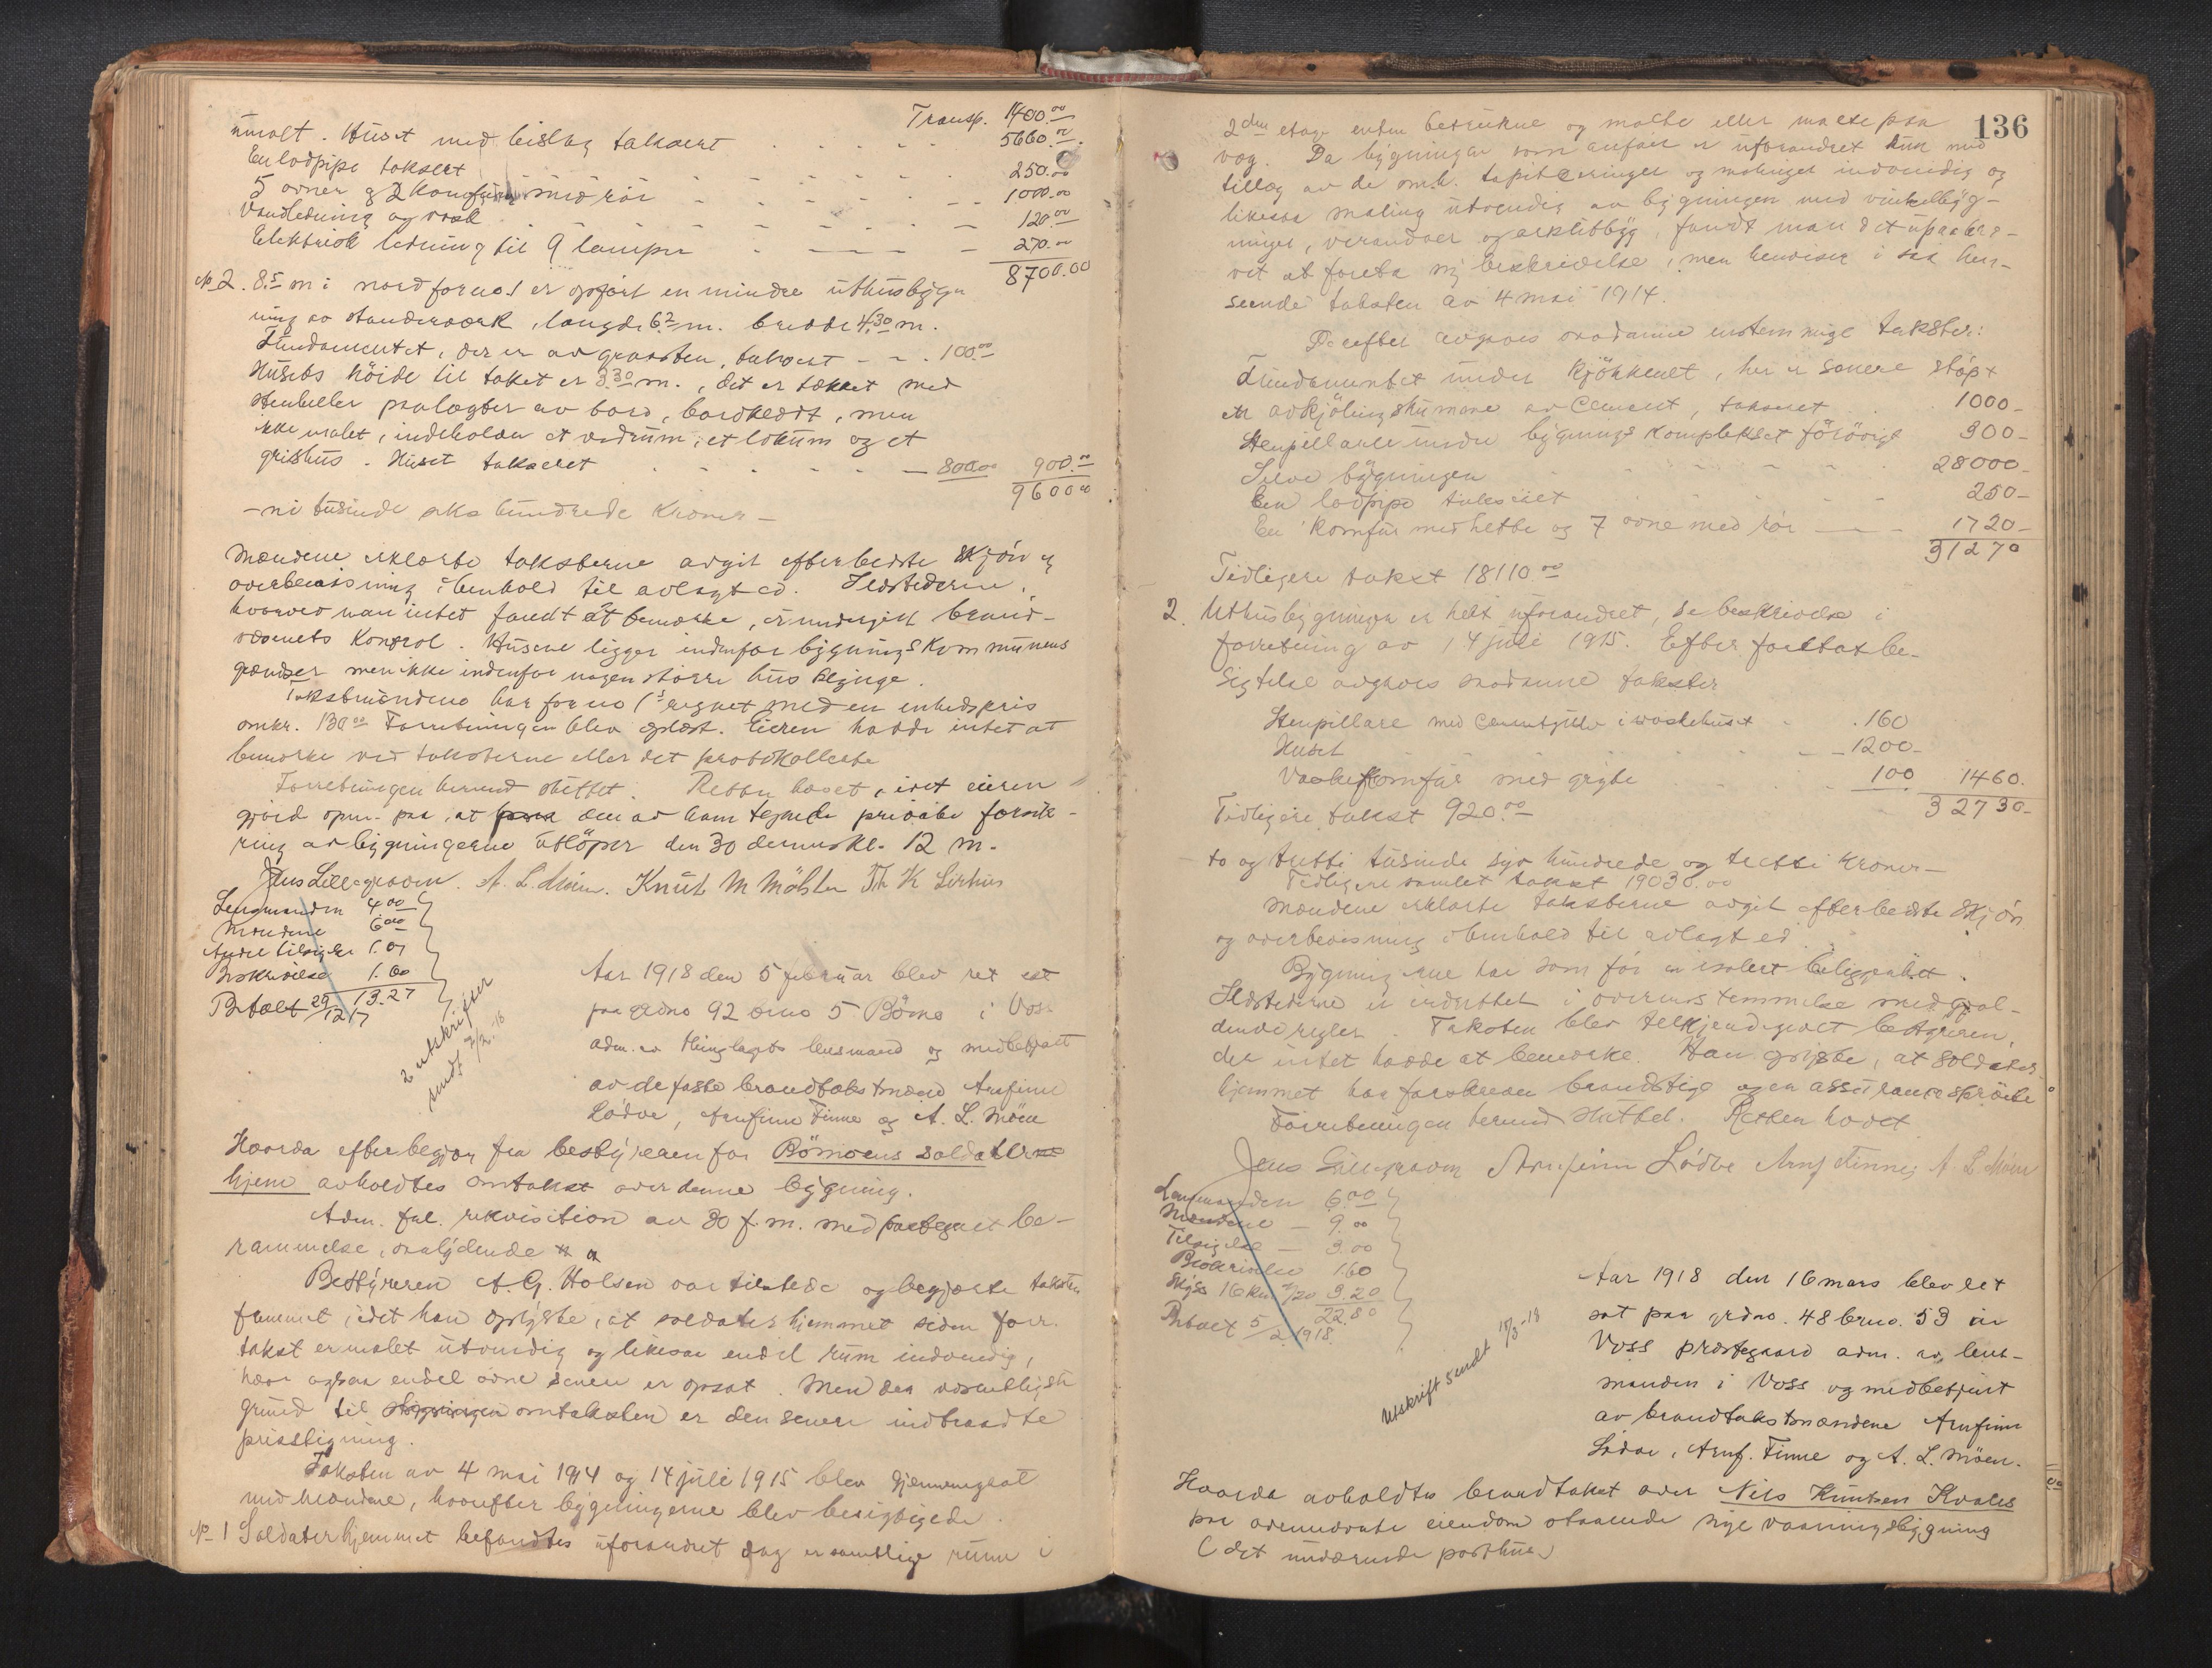 Transp. 1400.00
umalt. Huset med bislag taksert 5660.00
En lodpipe taksert 250.00
5 ovner og 2 komfurer med rör 1000.00
Vandledning og vask 120.00
Elektrisk ledning til 9 lamper 270.00
8700.00
No 2. 8.5 m i nord for no 1 er opfört en mindre uthusbygn
ing av standerverk, længde 6.2 m. bredde 4.30 m.
Fundamentet, der er av graasten, taksert 100.00
Husets höide til taket er 3.30 m., det er tækket med
stenheller paa lægter av bord, bordklædt, men
ikke malet, indeholder et vedrum, et lokum og et
grishus. Huset taksert 800.00 900.00
9600.00
- ni tusinde seks hundrede kroner -
Mændene erklærte taksterne avgit efter bedste skjön og
overbevisning i henhold til avlagt ed. Ildstederne,
hvorved man intet fandt at bemerke, er undergit brand-
væsenets kontrol. Husene ligger indenfor bygningskommunens
grændser men ikke indenfor nogen större hus klynge.
Takstmændene har for no 1 regnet med en enhedspris
omkr. 130.00 Forretningen blev oplæst. Eieren hadde intet at
bemerke ved taksterne eller det protokollerte
Forretningen hermed sluttet. Retten hævet, idet eieren
gjord opm. paa, at den av ham tegnede private forsik-
ring av bygningerne utlöper den 30 dennes kl. 12 m.
Jens Lillegraven. A. L. Möen. Knut M Mölster Th K Sirhus
Lensmanden 4.00
Mændene 6.00
Andel tilsigelse 1.07
Beskrivelse 1.60
Betalt 29/12 17 13.27
2 utskrifter
sendt 7/2-18
Aar 1918 den 5 februar blev ret sat
paa grdno 92 brno 5 Bömo i Voss
adm. av thinglagets lensmand og medbetjent
av de faste brandtakstmænd Arnfinn
Lödve, Arnfinn Finne og A. L. Möen
Hvorda efter begjær fra bestyreren for Bömoens soldater
hjem avholdtes omtakst over denne bygning.
Adm. frl. rekvisition av 30 f. m. med paategnet be-
rammelse, saalydende
Bestyreren A. G. Holsen var tilstede og begjærte taksten
fremmet, idet han oplyste, at soldaterhjemmet siden forr.
takst er malet utvendig og likesaa endel rum indvendig,
hvor ogsaa endel ovne senere er opsat. Men den væsentligste
grund til omtaksten er den senere indtraadte
prisstigning.
Taksten av 4 mai 1914 og 14 juli 1915 blev gjennemgaat
med mændene, hvorefter bygningerne blev besigtigede.
No 1 Soldaterhjemmet befandtes uforandret dog er samtlige rum i
136
2den etage enten betrukne og malte eller malte paa
væg. Da bygningen som anfört er uforandret kun med
tillæg av de omh. tapitseringer og malinger indvendig og
likesaa maling utvendig av bygningen med vinkelbyg-
ninger, verandaer og arkutbygg, fandt man det upaakræ-
vet at foreta ny beskrivelse, men henviser i saa hen-
seende taksten av 4 mai 1914.
Derefter avgaves saadanne enstemmige takster:
Fundamentet under kjökkenet, her er senere stöpt
et avkjölingskumme av cement, taksert 1000-
Stenpillarene under bygningskomplekset forövrigt 300-
Selve bygningen 28000-
En lodpipe taksert 250-
En komfur med hette og 7 ovne med rör 1720-
31270
Tidligere takst 18110.00
2. Uthusbygningen er helt uforandret, se beskrivelse i
forretning av 14 juli 1915. Efter foretat be-
sigtelse avgaves saadanne takster
Stenpillare med cementgulv i vaskehuset 160
Huset 1200-
Vaskekomfur med gryte 100 1460.
Tidligere takst 920.00 32730-
- to og tretti tusinde syv hundrede og tretti kroner -
Tidligere samlet takst 19030.00
Mændene erklærte taksterne avgit efter bedste skjön
og overbevisning i henhold til avlagt ed.
Bygningerne har som för en isolert beliggenhet.
Ildstederne er indrettet i overensstemmelse med gjæl-
dende regler. Taksten blev tilkjendegivet bestyreren,
der intet hadde at bemerke. Han oplyste, at soldater
hjemmet har forskreven brandstige og en assuransespröite
Forretningen hermed sluttet. Retten hævet
Jens Lillegraven Arnfinn Lödve Arnf Finne A L Möen
Lensmanden 6.00
Mændene - 9.00
Tilsigelse - 3.00
Beskrivelse 1.60
Skyss 16 km à /20 3.20
22.80
Betalt 5/2 1918.
Utskrift sendt 18/3-18
Aar 1918 den 16 mars blev ret
sat paa grdno. 48 brno. 53 av
Voss prestegaard adm. av lens-
manden i Voss og medbetjent
av brandtakstmændene Arnfinn
Lödve, Arnf. Finne og A. L. Möen.
Hvorda avholdtes brandtakst over Nils Knutsen Kvales
paa ovennævnte eiendom staaende nye vaaningsbygning
(det nuværende posthus)